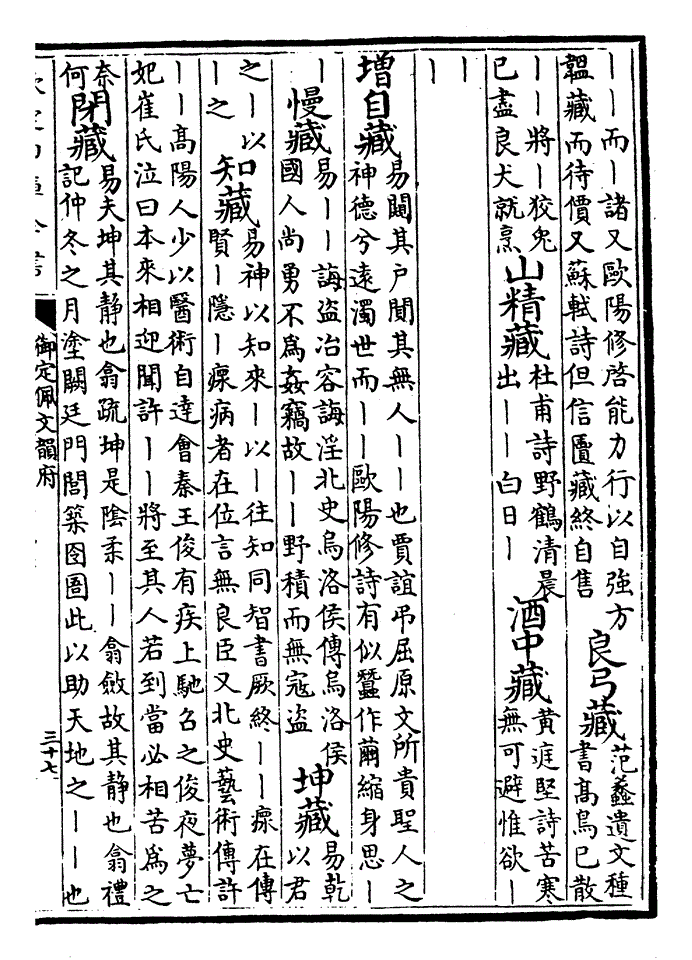 ——而—諸又歐陽修啓能力行以自強方
韞藏而待價又蘇軾詩但信匵藏終自售
良弓藏
范蠡遺文種
書髙鳥已散
——將—狡兔
已盡良犬就烹
山精藏
杜甫詩野鶴清晨
出——白日—
酒中藏
黄庭堅詩苦寒
無可避惟欲—
—
—
增自藏
易闚其户闃其無人——也賈誼弔屈原文所貴聖人之
神德兮遠濁世而——歐陽修詩有似蠶作繭縮身思—
—
慢藏
易——誨盜冶容誨淫北史烏洛侯傳烏洛侯
國人尚勇不爲姦竊故——野積而無寇盜
坤藏
易乾
以君
之—以
—之
知藏
易神以知來—以—往知同智書厥終——瘝在傳
賢—隱—瘝病者在位言無良臣又北史藝術傳許
——髙陽人少以醫術自達會秦王俊有疾上馳召之俊夜夢亡
妃崔氏泣曰本來相迎聞許——將至其人若到當必相苦爲之
奈
何
閉藏
易夫坤其静也翕疏坤是陰柔——翕斂故其静也翕禮
記仲冬之月塗闕廷門閭築囹圄此以助天地之——也
御定佩文韻府
三十七